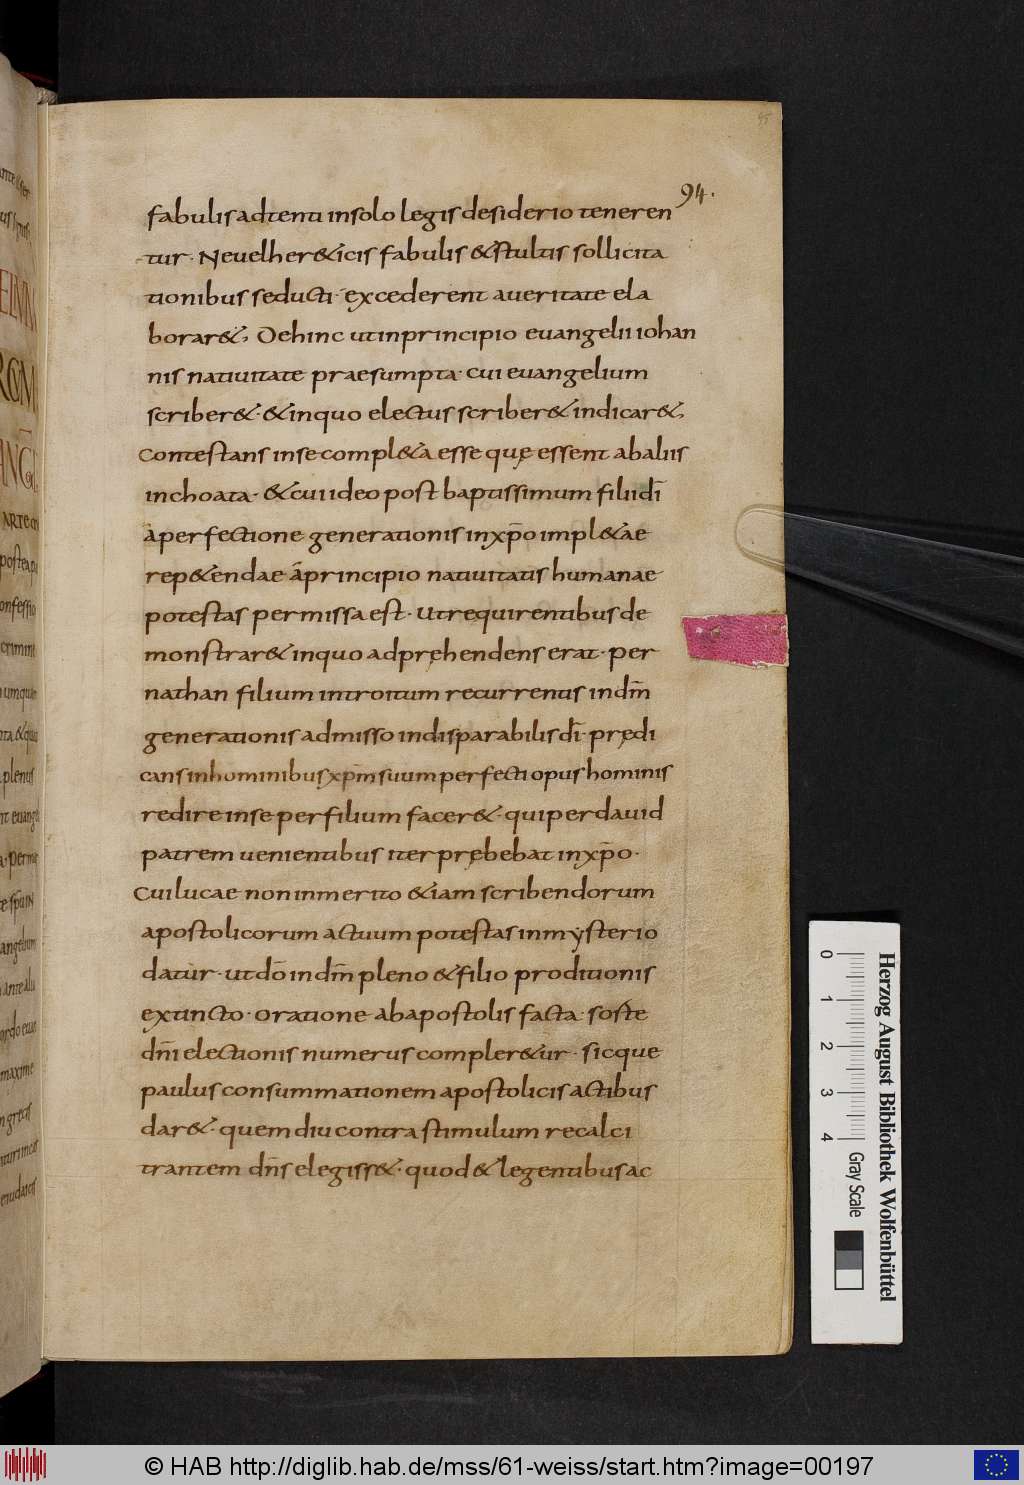 95
94.
fabulis adtenti insolo legis desiderio teneren
tur. Neuelher&icis fabulis &stultis sollicita
tionibus seducti. excederent aueritate ela
borar&, Dehinc utinprincipio euangelii iohan
nis natiuitate praesumpta. cui euangelium
scriber&. &inquo electus scriber& indicar&,
Contestans inse compl&a esse quę essent abaliis
inchoata. &cui ideo post baptissimum filii dī
aperfectione generationis inxp̄o impl&ae
rep&endae aprincipio natiuitatis humanae
potestas permissa est. Utrequirentibus de
monstrar& inquo adprehendens erat. per
nathan filium introitum recurrentis indm̄
generationis admisso indisparabilis dī. prędi
cans inhominibus xp̄m suum perfecti opus hominis
redire inse perfilium facer&. quiperdauid
patrem uenientibus iter prębebat inxp̄o.
Cui lucae non inmerito &iam scribendorum
apostolicorum actuum potestas inmẏsterio
datur. utdō indm̄ pleno &filio proditionis
extincto. oratione abapostolis facta. sorte
dn̄i electionis numerus compler&ur. sicque
paulus consummationem apostolicis actibus
dar&. quem diu contra stimulum recalci
trantem dn̄s elegiss&. quod &legentibus ac
0 1 2 3 4
Gray Scale
Herzog August Bibliothek Wolfenbüttel
© HAB http://diglib.hab.de/mss/61-weiss/start.htm?image=00197